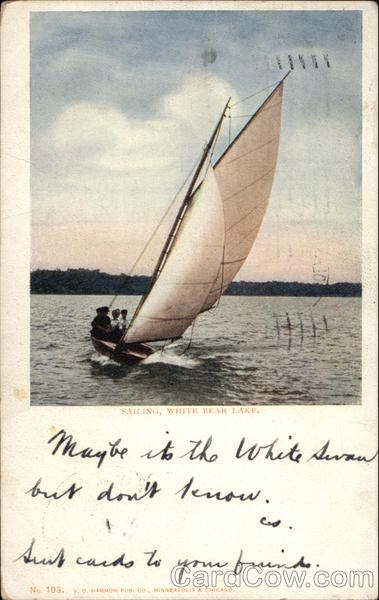 SAILING, WHITE BEAR LAKE.
Maybe its the White Swan
but don't know.
cs.
Sent cards to your friends.
No. 105. V. O. HAMMON PUB. CO., MINNEAPOLIS & CHICAGO.
CardCow.com